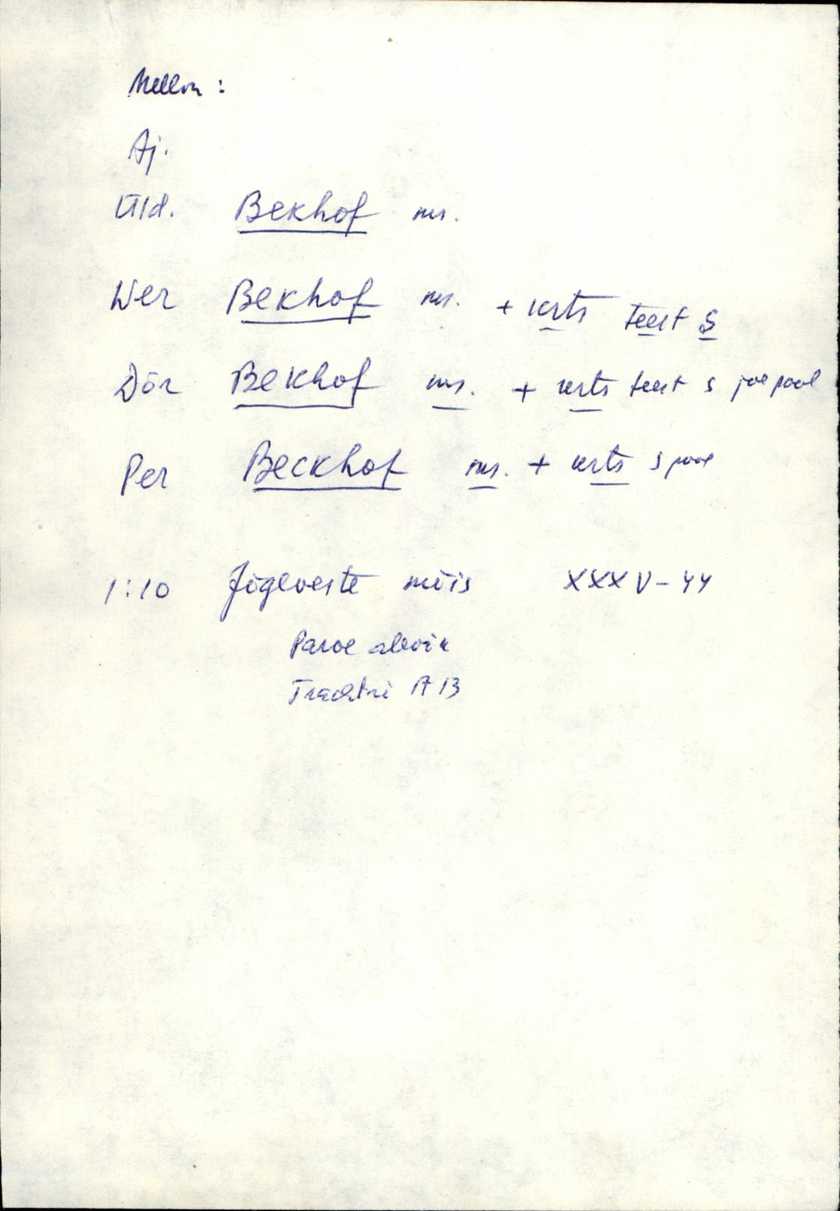 Mellin :
Aj.
Üld. Bekhof ms.
Wer Bekhof ms. + krts teest S
Dör Bekhof ms. + krts teest S joe pool
Per Beckhof ms. + krts S pool
1:10 Jõgeveste mõis XXXV-44
Parve
A 13